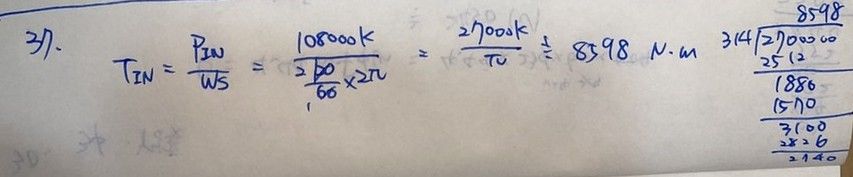 37.
T_IN = P_IN/WS = 108000k/(120/60 × 2π) = 27000k/π ≒ 8598 N·m
8598
314)2700000
2512
1880
1570
3100
2826
2740